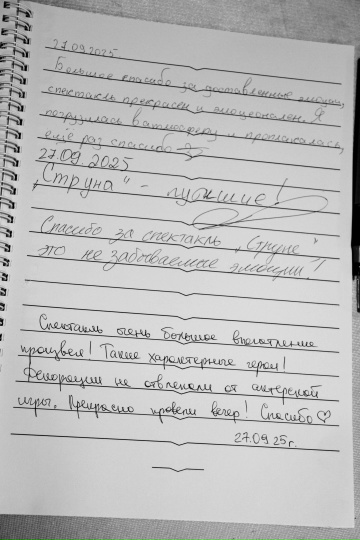 27.09.2025
Большое спасибо за доставленные эмоции,
спектакль прекрасен и эмоционален. Я
погрузилась в атмосферу и проплакалась,
ещё раз спасибо
27.09.2025
"Струна" - лучшие!
Спасибо за спектакль "Струне"
это не забываемые эмоции!
Спектакль очень большое впечатление
произвел! Такие характерные герои!
Декорации не отвлекали от актерской
игры. Прекрасно провели вечер! Спасибо♡
27.09.25г.